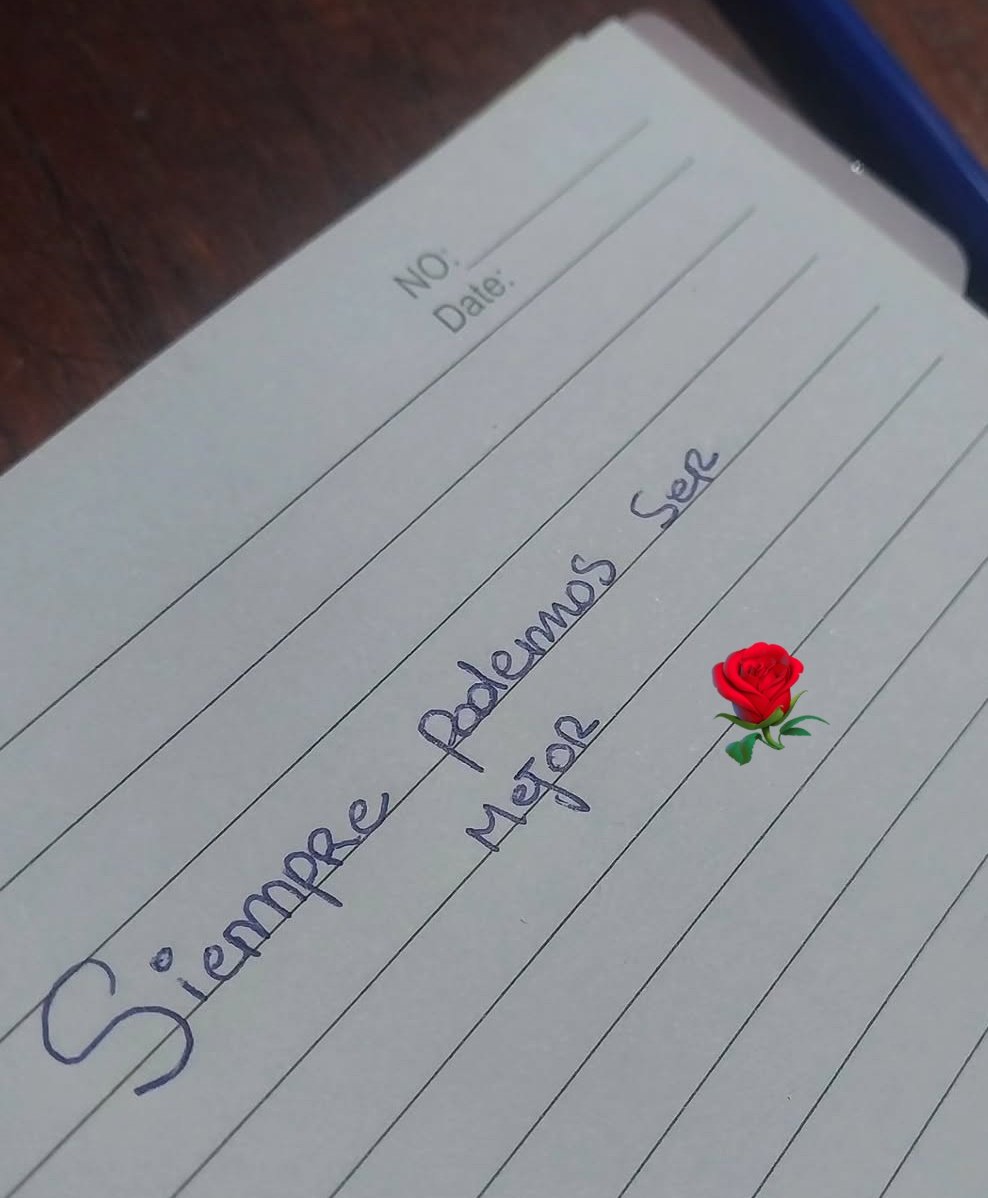 NO:
Date:
Siempre podemos Ser
Mejor